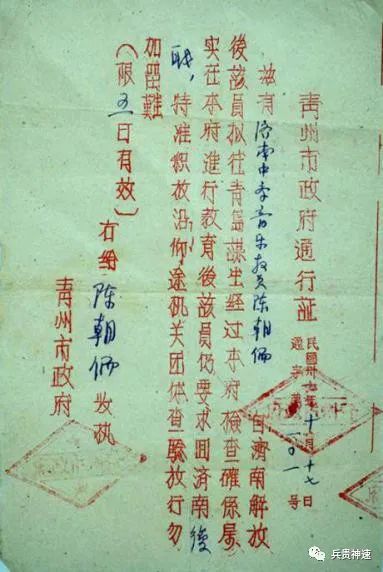 青州市政府通行証
民國卅七年十月十七日
字第一〇一号
兹有济南中学音乐教员陈朝俪自濟南解放
後該員拟往青島謀生经过本府檢查確係屬
实在本府進行教育後該員仍要求囬濟南復
职，特准积放沿仰途机关团体查驗放行勿
加畱難
（限五日有效）
右给陈朝俪收执
青州市政府
兵贵神速